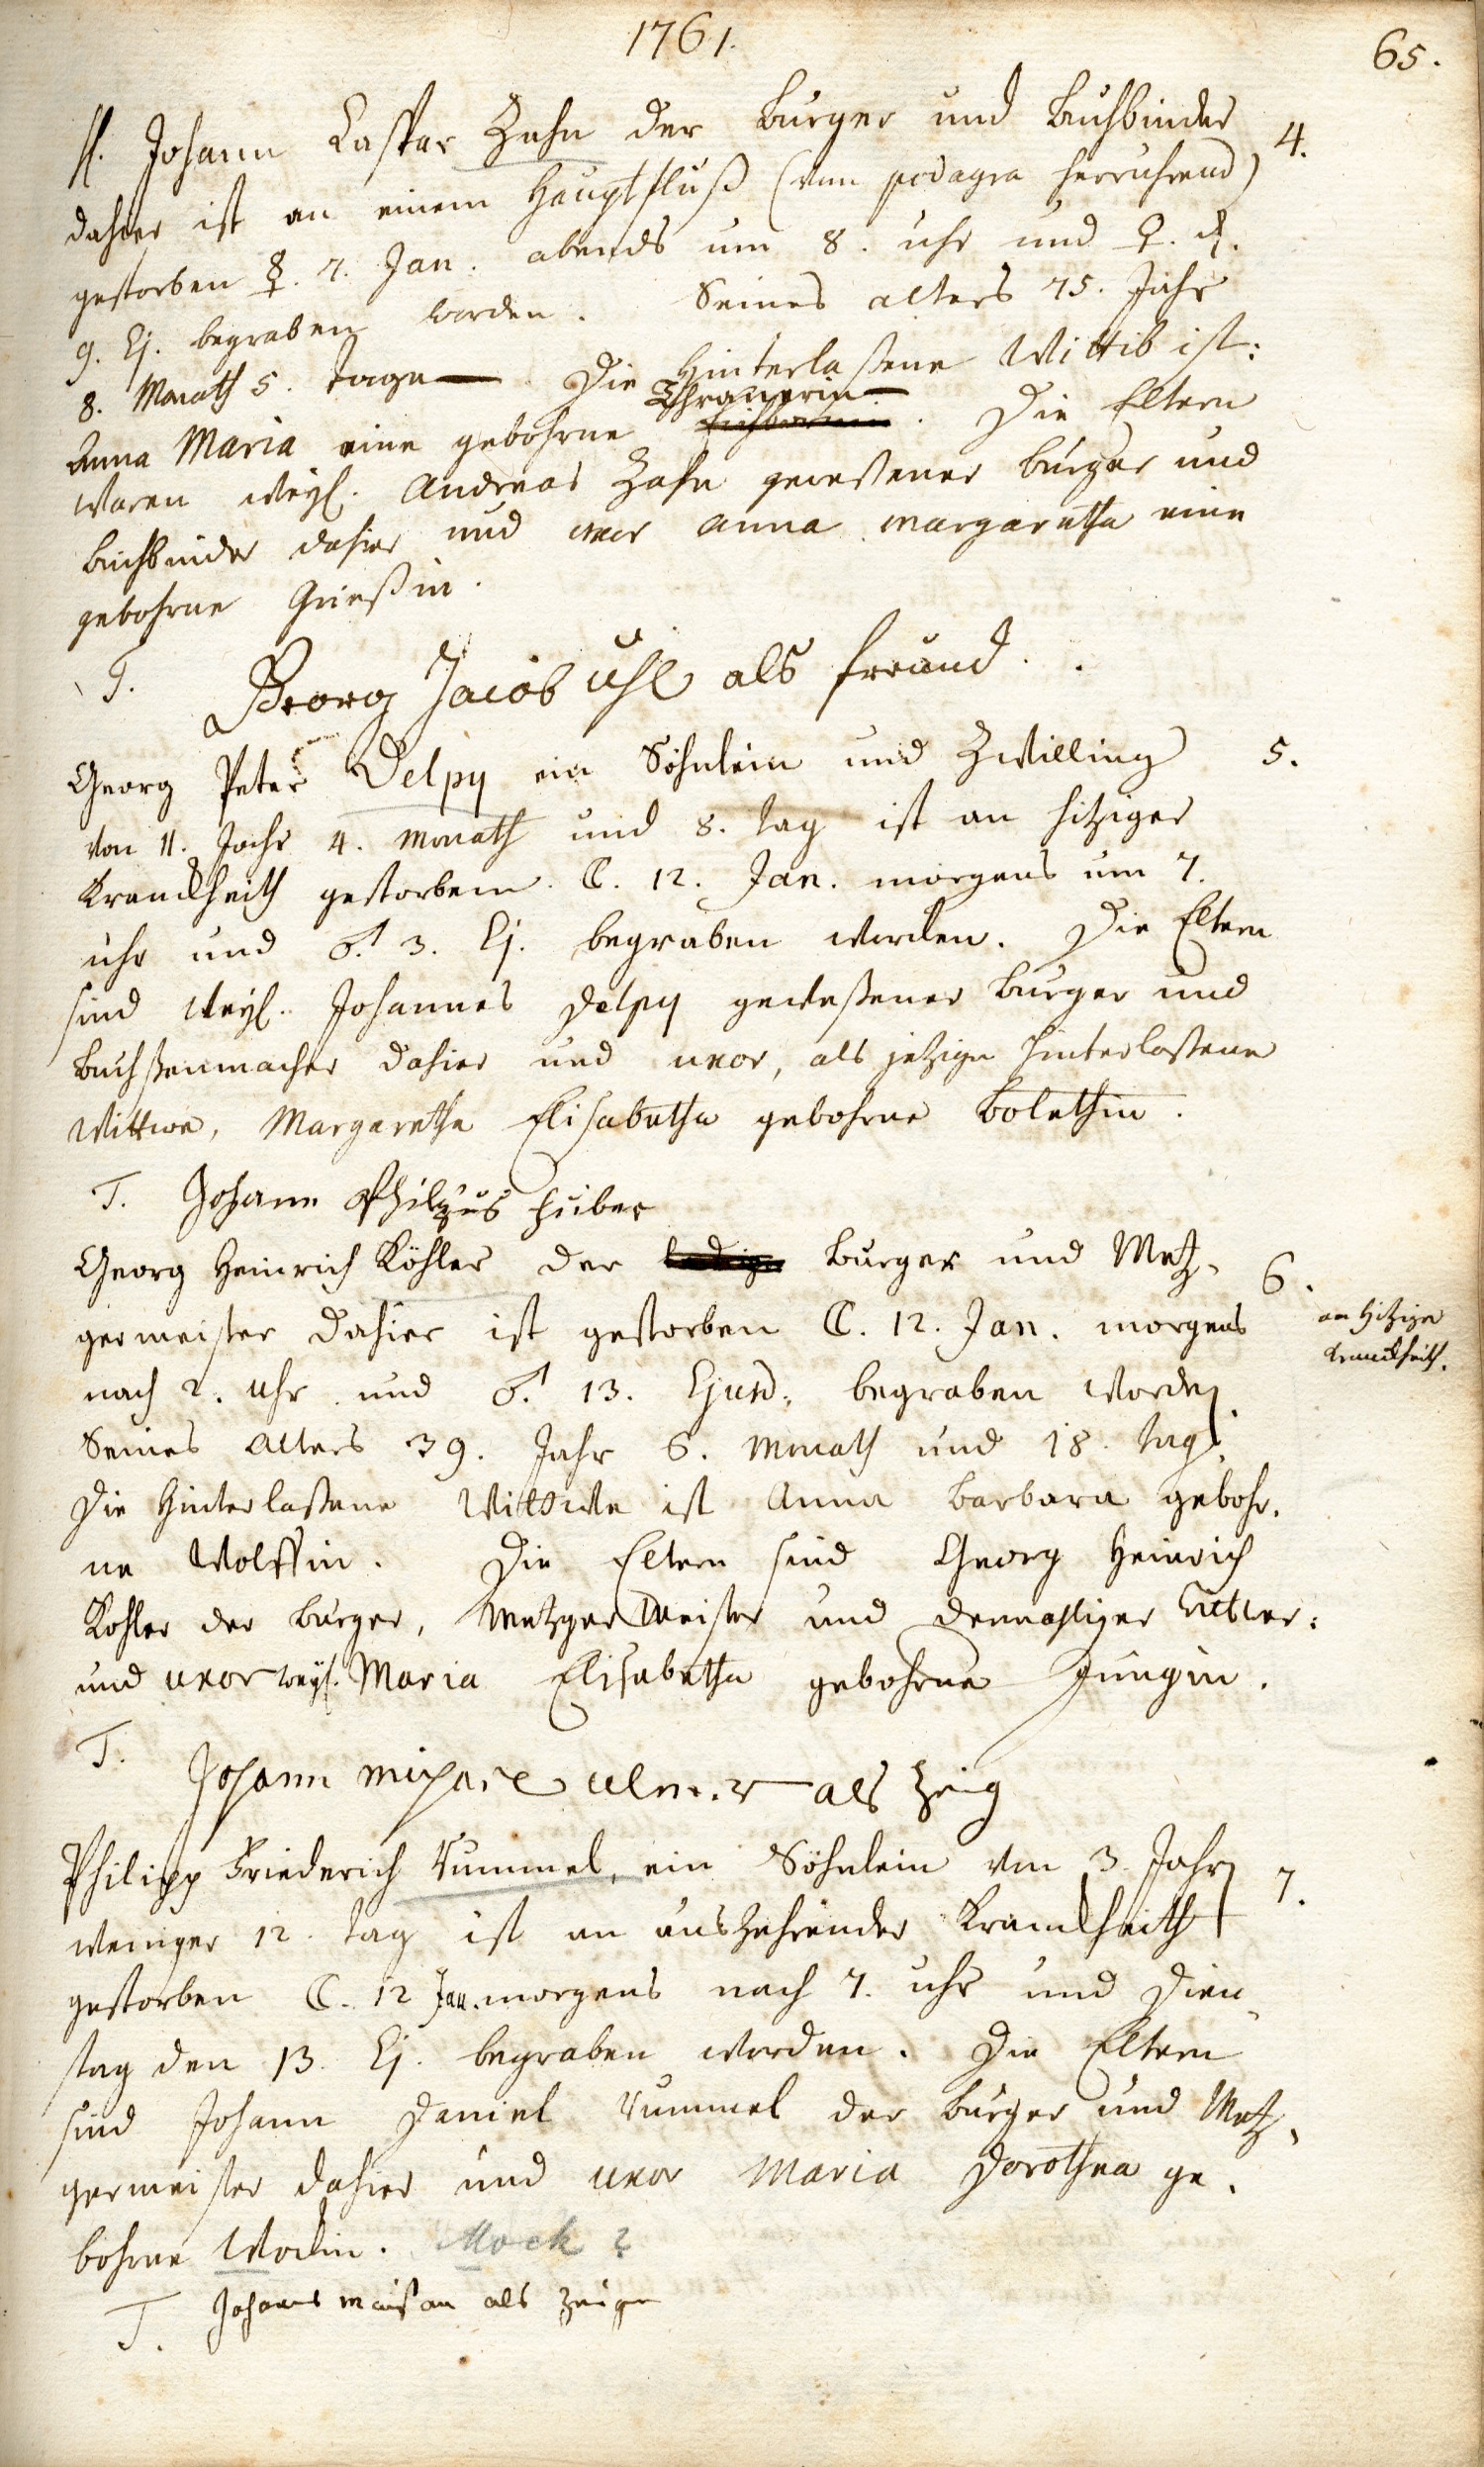 1761.
65.
H. Johann Caspar Zahn der Burger und Buchbinder
4.
dahier ist an einem Hauptfluß (vom podagra herruhrend)
gestorben ☿. 7. Jan. abends um 8. uhr und ♀. d.
9. Ej. begraben worden. Seines alters 75. Jahr
8. Monath 5. Tage — Die Hinterlaßene Wittib ist:
Anna Maria eine gebohrne. Die Eltern
waren weyl. Andreas Zahn geweßener burger und
buchbinder dahier und uxor anna margaretha eine
gebohrne Grießin.
T. Georg Jacob Uhl als freund.
Georg Peter Delpy ein Söhnlein und Zwilling
5.
von 11. Jahr 4. Monath und 8. tag ist an hitziger
Kranckheith gestorben. ☾. 12. Jan. morgens um 7.
uhr und ♂. 3. Ej. begraben worden. Die Eltern
sind weyl. Johannes Delpy geweßener burger und
buchßenmacher dahier und uxor, als jetzige hinterlaßene
Wittwe, Margaretha Elisabetha gebohrne Bolethin.
T. Johann Huber
Georg Heinrich Köhler der burger und Metz-
6.
germeister dahier ist gestorben ☾. 12. Jan. morgens
an hitziger
Kranckheith.
nach 2. Uhr und ♂. 13. Ejusd. begraben worden.
Seines Alters 39. Jahr 6. Monath und 18. tag.
Die hinterlaßene Wittwe ist Anna Barbara gebohr-
ne Wolffin. Die Eltern sind Georg Heinrich
Kohler der burger, Metzger Meister und dermahliger:
und uxor weyl. Maria Elisabetha gebohrne Jungin.
T. Johann als Zeig
Philipp Friederich Rummel, ein Söhnlein von 3. Jahr
7.
weniger 12. tag ist an auszehrender Kranckheith
gestorben ☾. 12 Jan. morgens nach 7. uhr und Dien-
stag den 13. Ej. begraben worden. Die Eltern
sind Johann Daniel Rummel der burger und Metz-
germeister dahier und uxor Maria Dorothea ge-
bohrne Mockin. Mock?
T. Johannes als zeuge